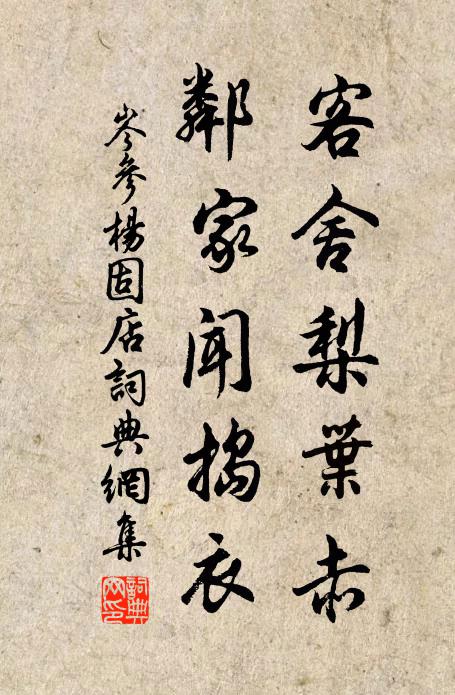 客舍梨葉赤
鄰家聞搗衣
岑參楊固店詞典網集
詞典網印